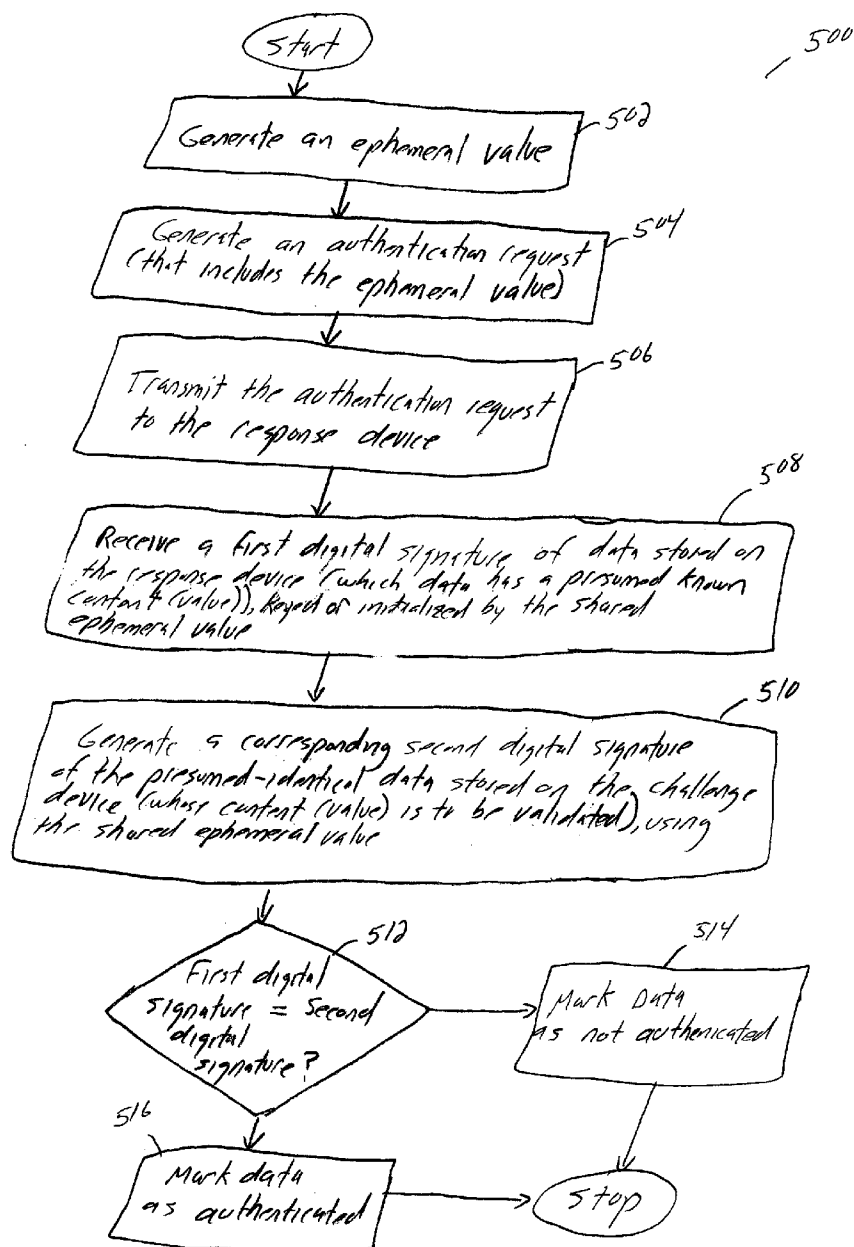 Start
500
502
Generate an ephemeral value
504
Generate an authentication request
(that includes the ephemeral value)
506
Transmit the authentication request
to the response device
508
Receive a first digital signature of data stored on
the response device (which data has a presumed known
content (value)), keyed or initialized by the shared
ephemeral value
510
Generate a corresponding second digital signature
of the presumed-identical data stored on the challenge
device (whose content (value) is to be validated), using
the shared ephemeral value
512
First digital
signature = Second
digital
signature?
514
Mark Data
as not authenicated
516
Mark data
as authenticated
Stop